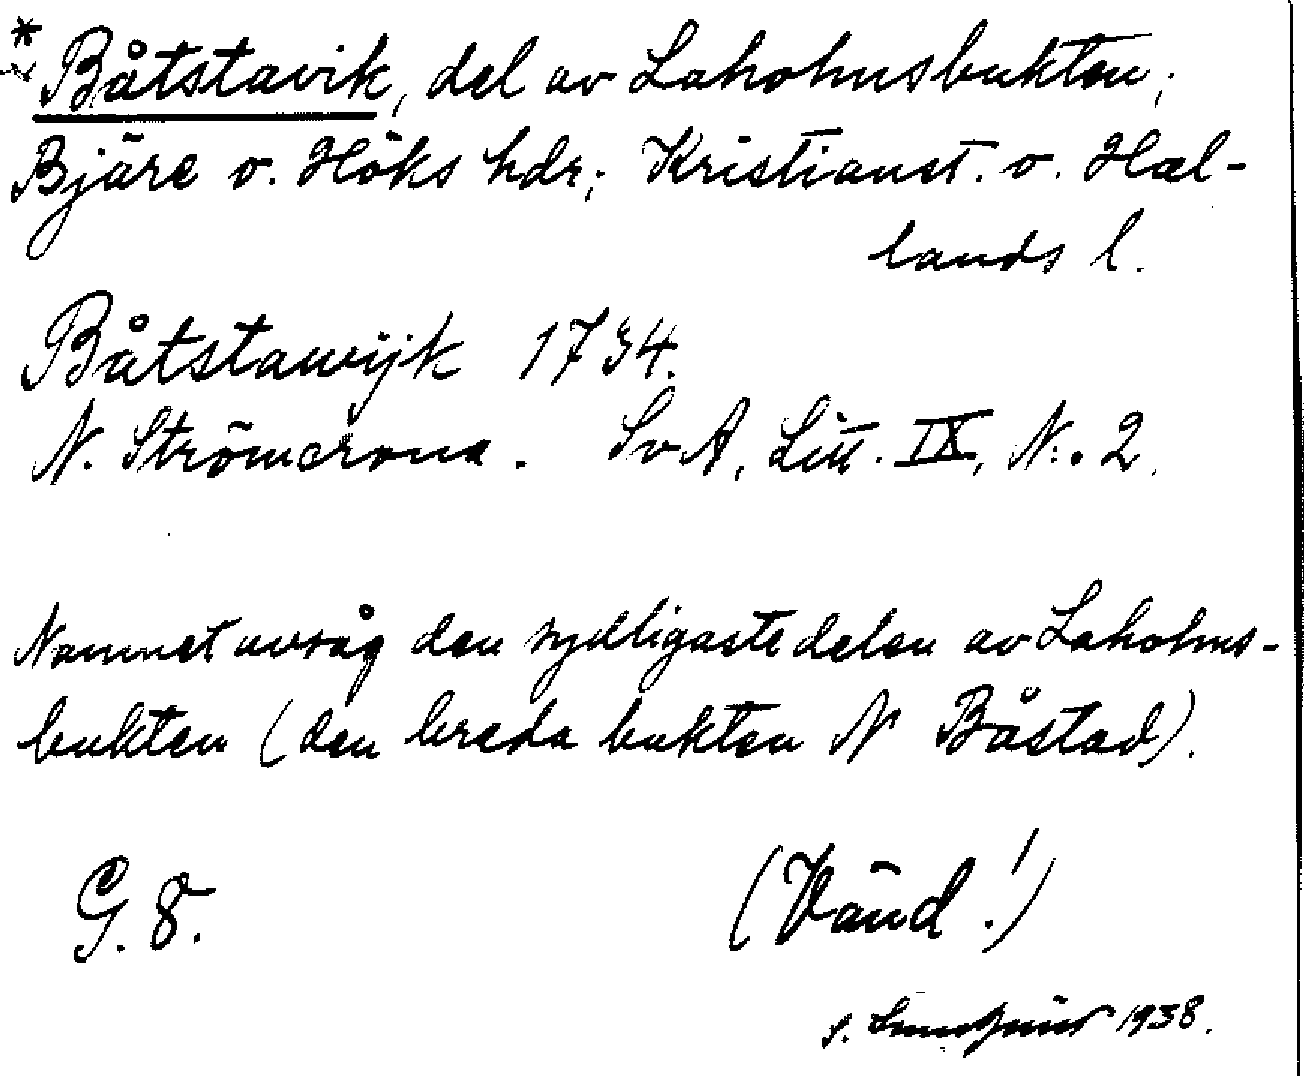 * Båtstavik, del av Laholmsbukten;
Bjäre o. Höks hdr; Kristianst. o. Hal-
lands l.
Båtstawijk 1734.
N. Strömcrona. SvA, Litt. IX, N:. 2.
Namnet avsåg den sydligaste delen av Laholms-
bukten (den breda bukten N Båstad).
G. 8.
(Vänd!)
S. 1938.